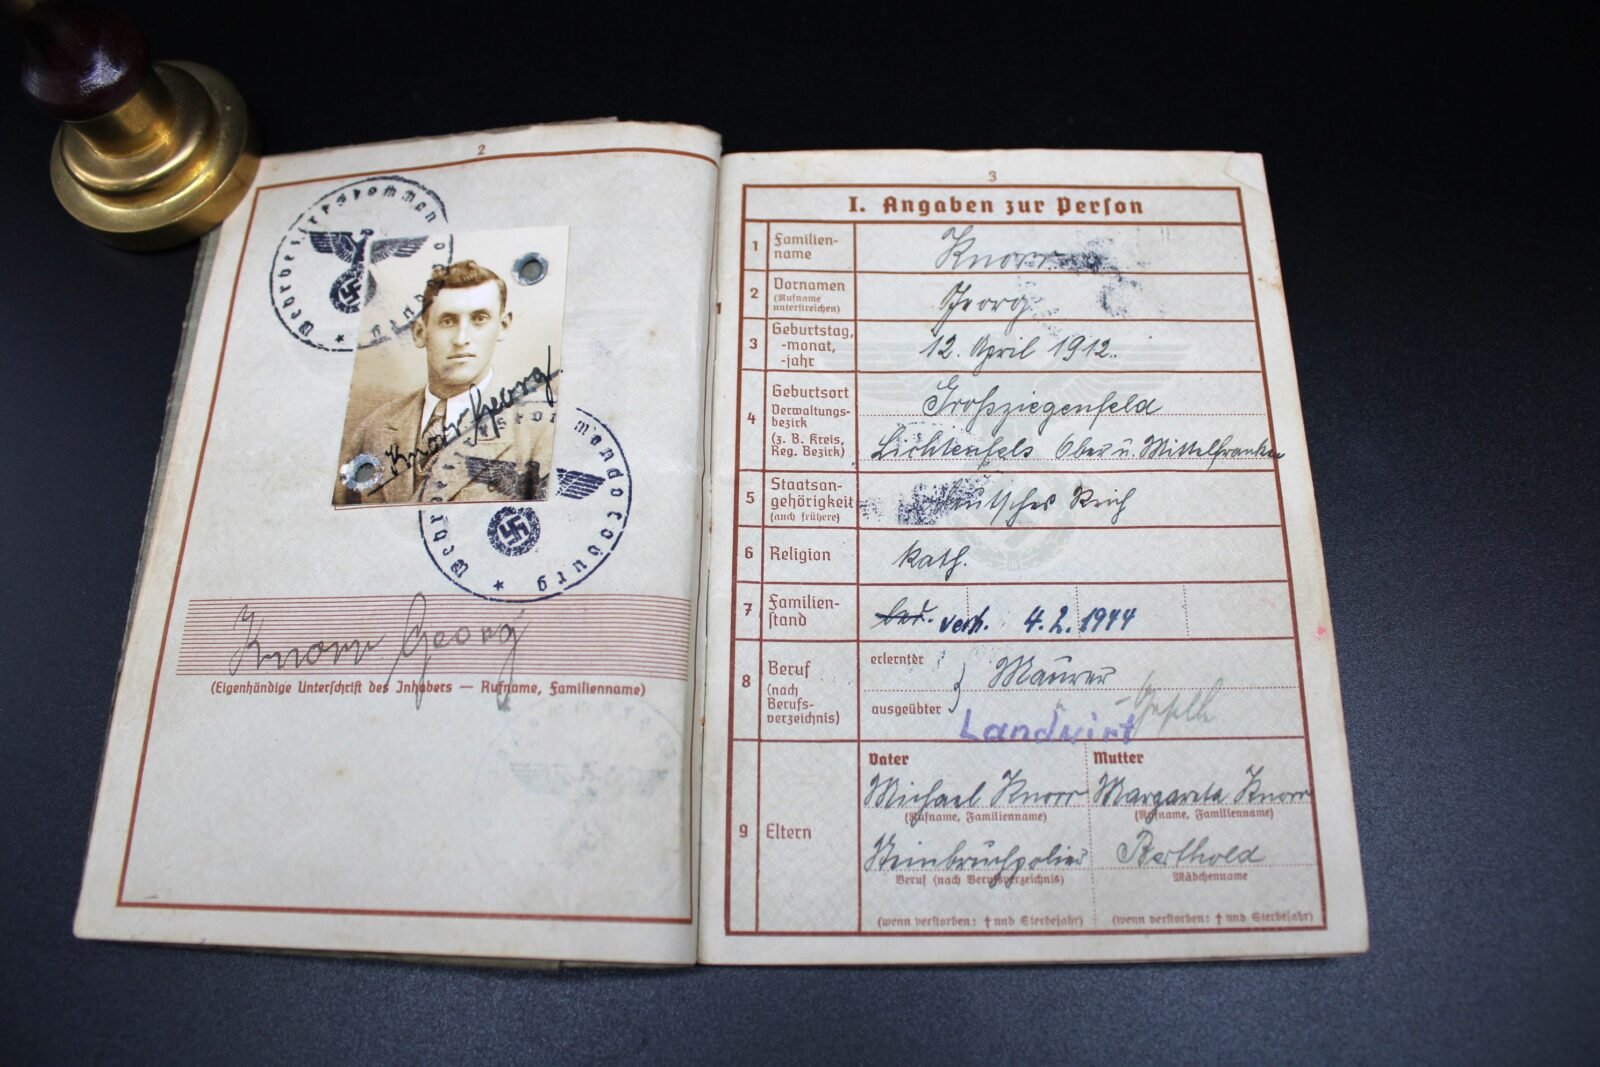 2
Knorr Georg
Knorr Georg
(Eigenhändige Unterschrift des Inhabers — Rufname, Familienname)
3
I. Angaben zur Person
1 Familien-
name
Knorr
2 Vornamen
(Rufname
unterstreichen)
Georg
3 Geburtstag,
-monat,
-jahr
12. April 1912.
4 Geburtsort
Verwaltungs-
bezirk
(z. B. Kreis,
Reg. Bezirk)
Großziegenfeld
Lichtenfels Ober u. Mittelfranken
5 Staatsan-
gehörigkeit
(auch frühere)
Deutsches Reich
6 Religion
kath.
7 Familien-
stand
led. verh. 4.2.1944
8 Beruf
(nach
Berufs-
verzeichnis)
erlernter
Maurer
ausgeübter
-Geselle
Landwirt
9 Eltern
Vater
Michael Knorr
(Rufname, Familienname)
Steinbruchpolier
Beruf (nach Berufsverzeichnis)
(wenn verstorben: † und Sterbejahr)
Mutter
Margareta Knorr
(Rufname, Familienname)
Berthold
Mädchenname
(wenn verstorben: † und Sterbejahr)